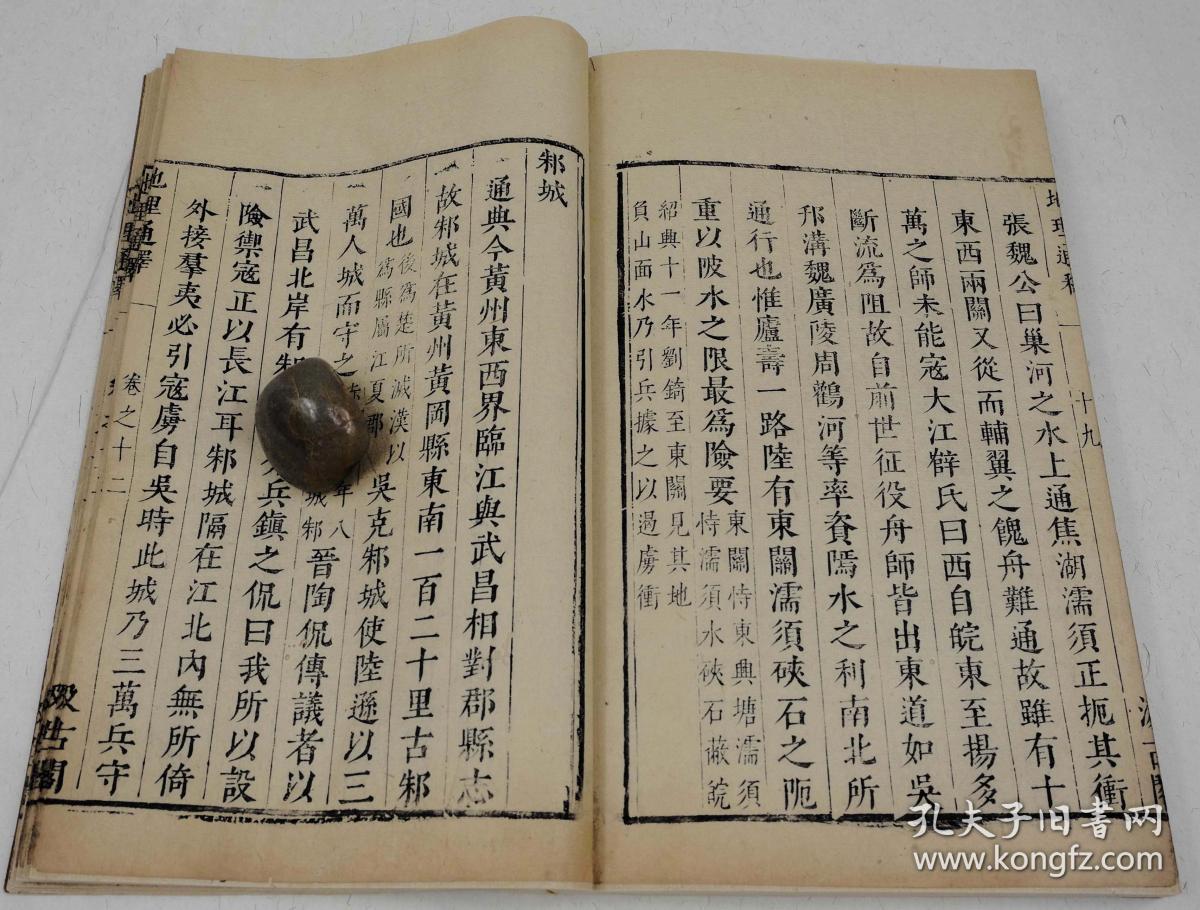 地理通釋 十九
張魏公曰巢河之水上通焦湖濡須正扼其衝
東西兩關又從而輔翼之餽舟難通故雖有十
萬之師未能寇大江薛氏曰西自皖東至揚多
斷流爲阻故自前世征役舟師皆出東道如吳
邗溝魏廣陵周鸛河等率資水之利南北所
通行也惟廬壽一路陸有東關濡須硤石之阨
重以陂水之限最爲險要
東關恃東興塘濡須
恃濡須水硤石蔽皖
紹興十一年劉錡至東關見其地
負山面水乃引兵據之以遏虜衝
邾城
通典今黃州東西界臨江與武昌相對郡縣志
故邾城在黃州黃岡縣東南一百二十里古邾
國也後爲楚所滅漢以
爲縣屬江夏郡
吳克邾城使陸遜以三
萬人城而守之
年八
城邾
晉陶侃傳議者以
武昌北岸有
兵鎮之侃曰我所以設
險禦寇正以長江耳邾城隔在江北內無所倚
外接羣夷必引寇虜自吳時此城乃三萬兵守
地理通釋 卷之十二 汲古閣
孔夫子旧书网
www.kongfz.com